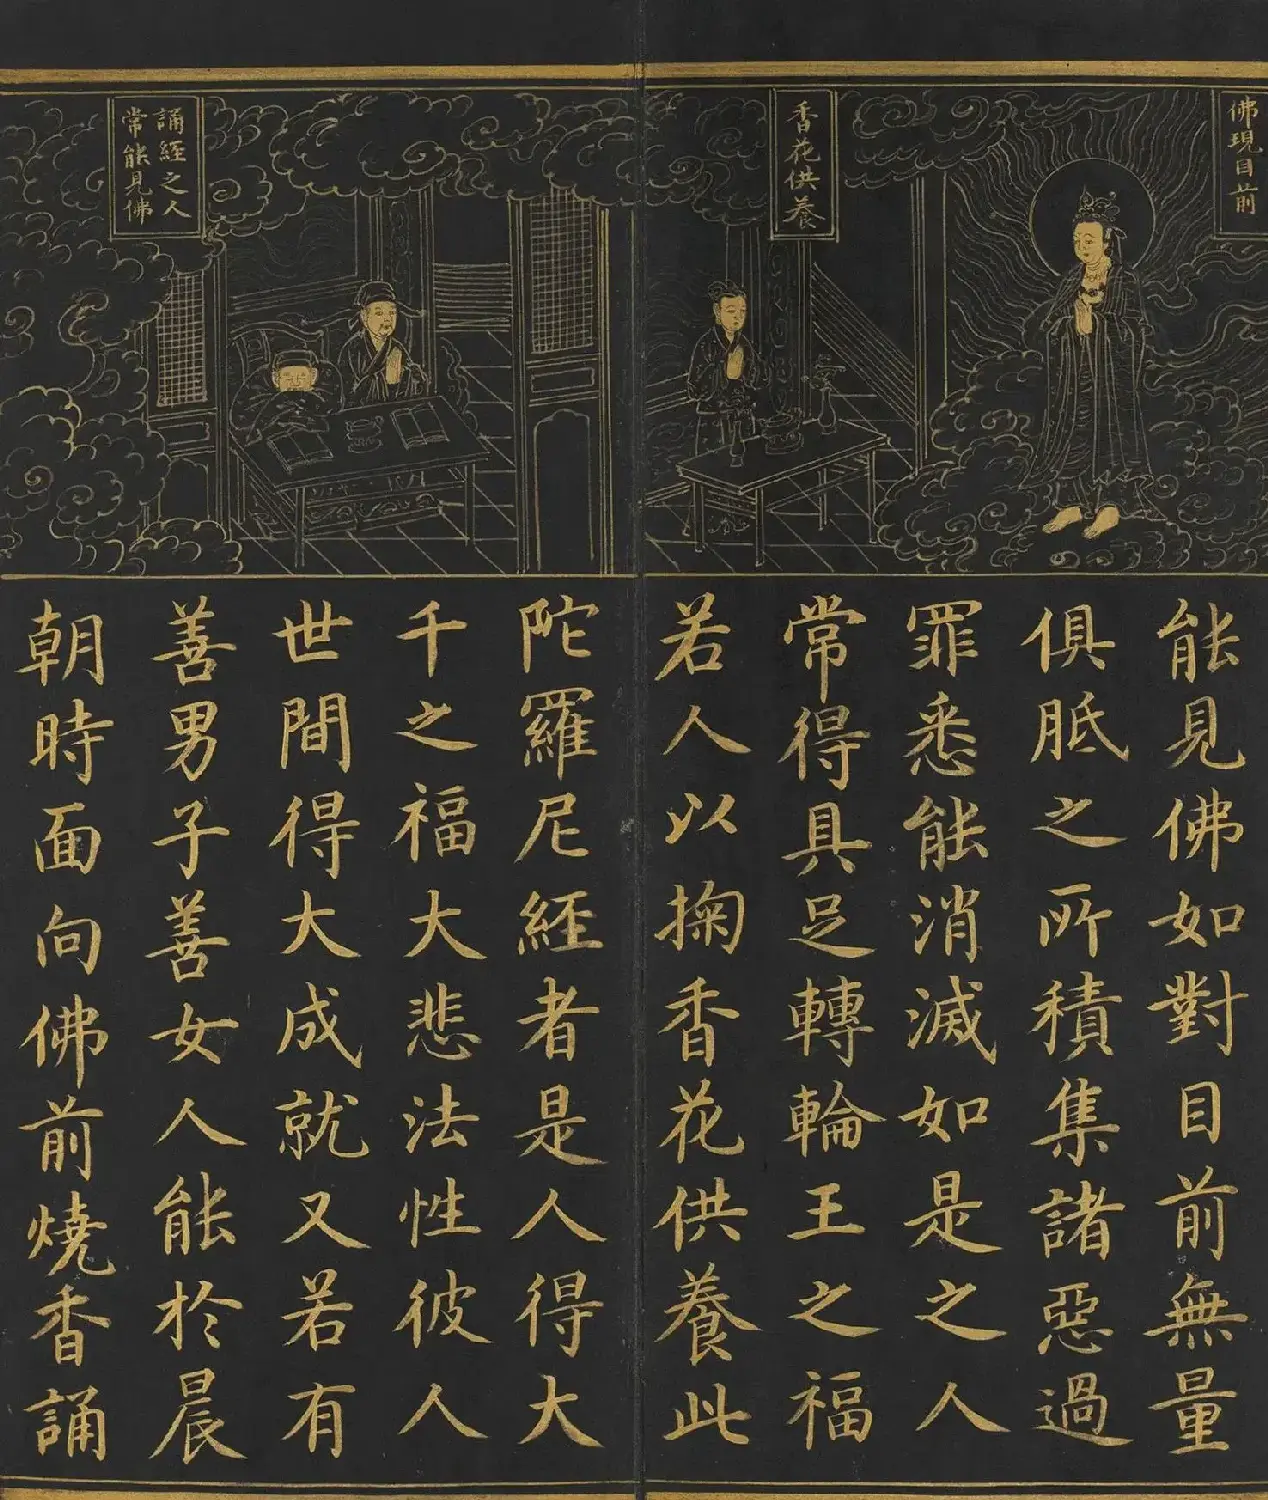 佛現目前
香花供養
誦經之人
常能見佛
能見佛如對目前無量
俱胝之所積集諸惡過
罪悉能消滅如是之人
常得具足轉輪王之福
若人以掬香花供養此
陀羅尼經者是人得大
千之福大悲法性彼人
世間得大成就又若有
善男子善女人能於晨
朝時面向佛前燒香誦